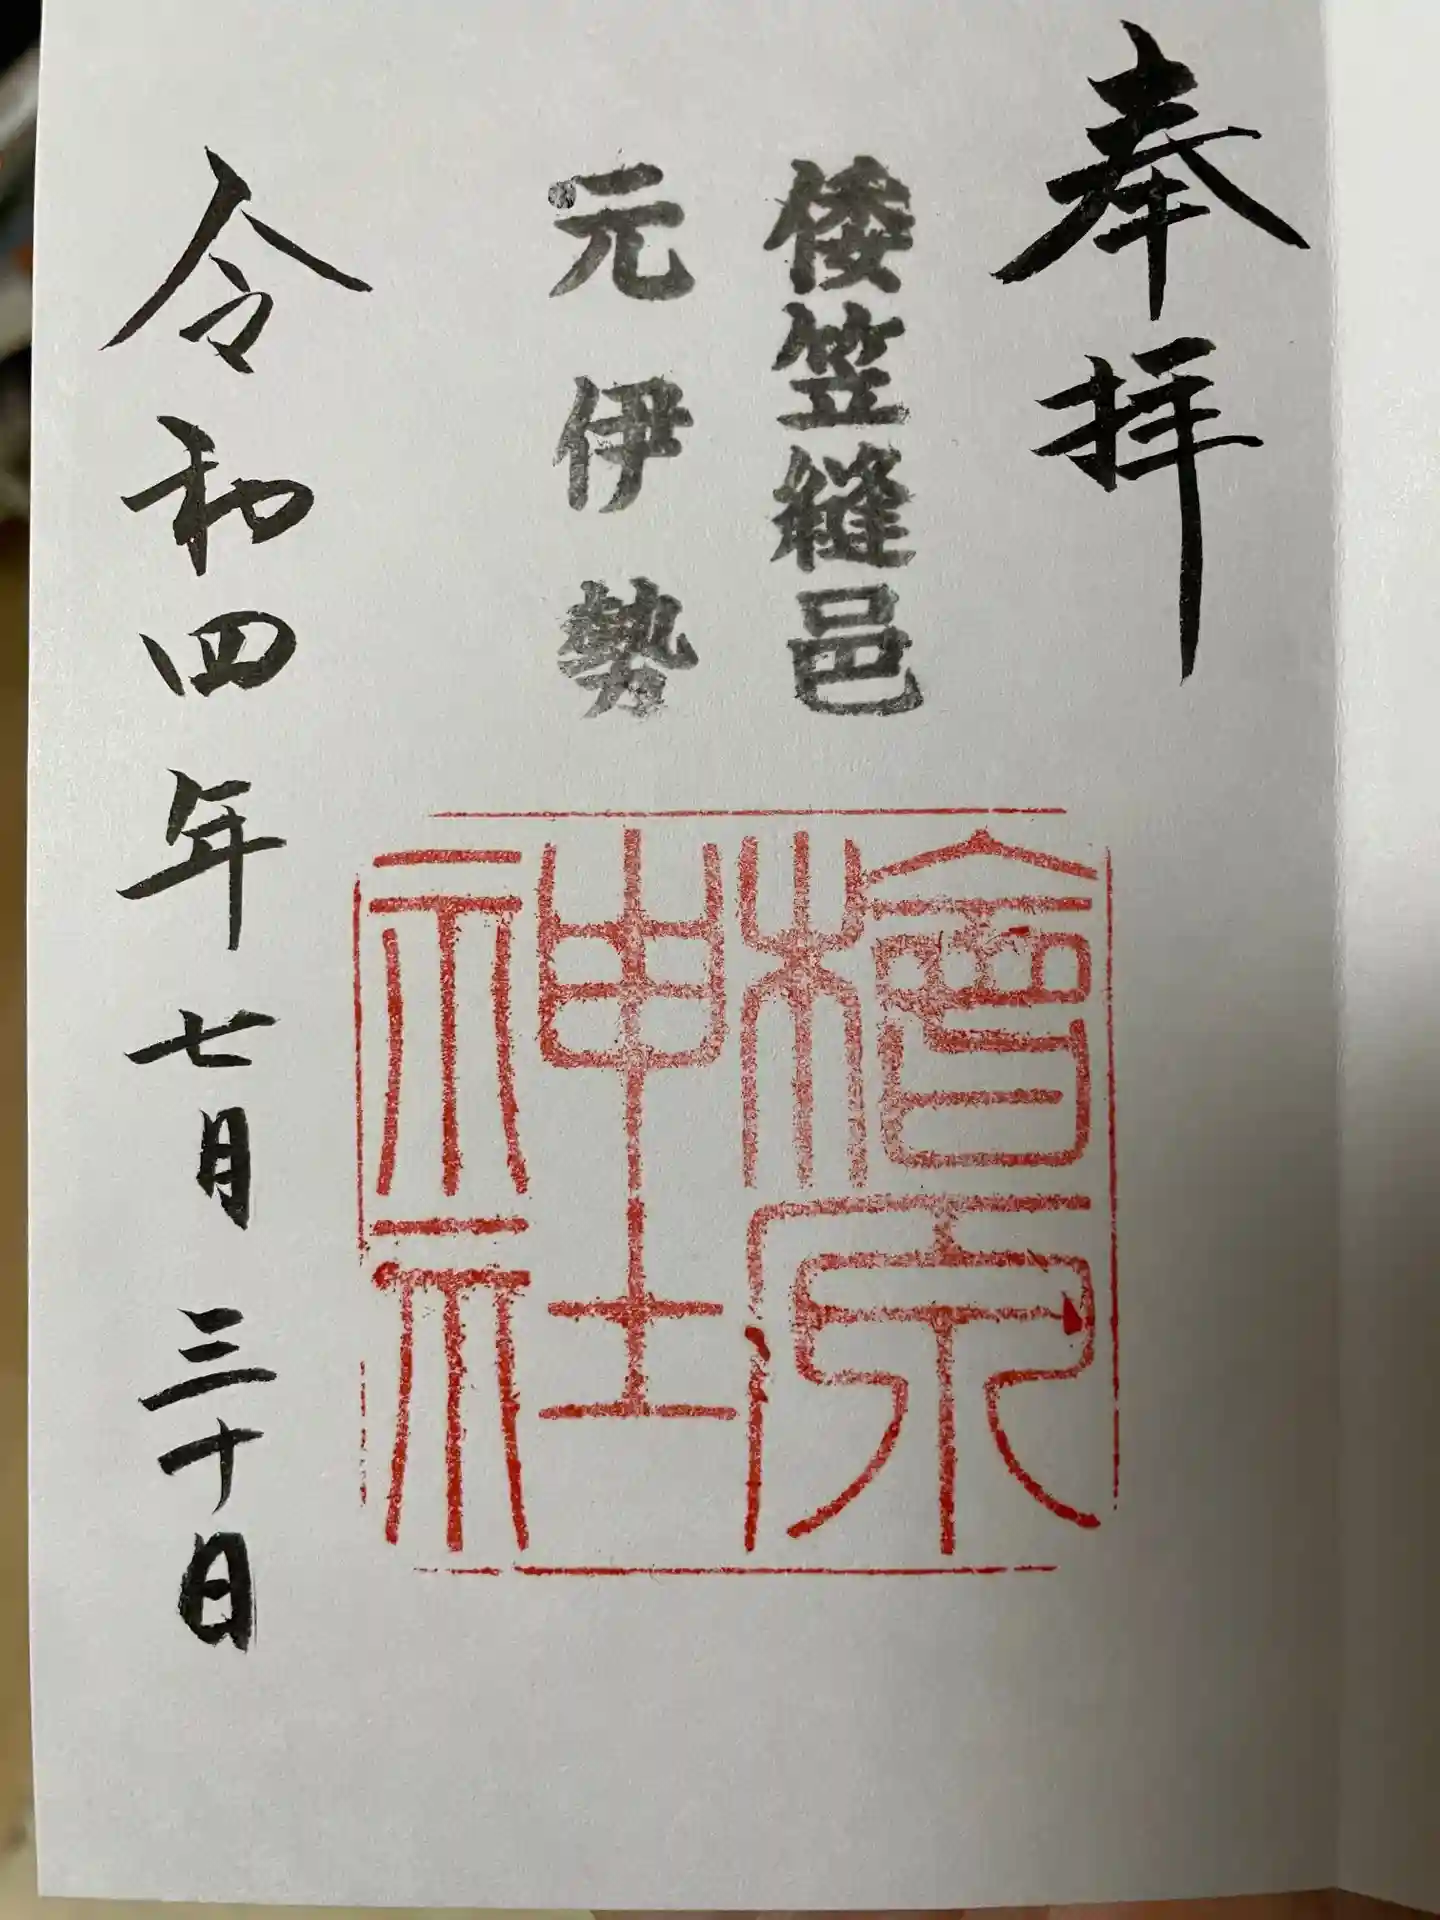 奉拝
倭笠縫邑
元伊勢
檜原
神社
令和四年七月三十日